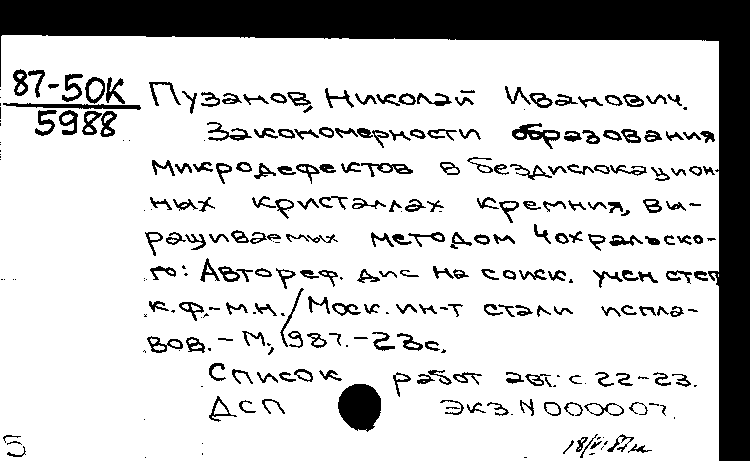 87-50К
5988
Пузанов, Николай Иванович.
Закономерности образования
микродефектов в бездислокацион-
ных кристаллах кремния, вы-
ращиваемых методом Чохральско-
го: Автореф. дис на соиск. учен. степ
к.ф.-м.н. / Моск. ин-т стали и спла-
вов. - М., 1987. - 23 с.
Список работ авт.: с. 22-23.
ДСП Экз. N 000007.
5